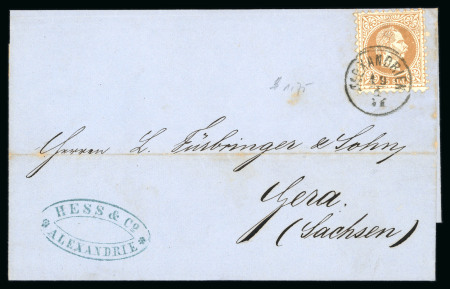 ALEXANDRIEN
19
Herren L. Fürbringer & Sohn,
Gera.
(Sachsen)
HESS & Co
ALEXANDRIE